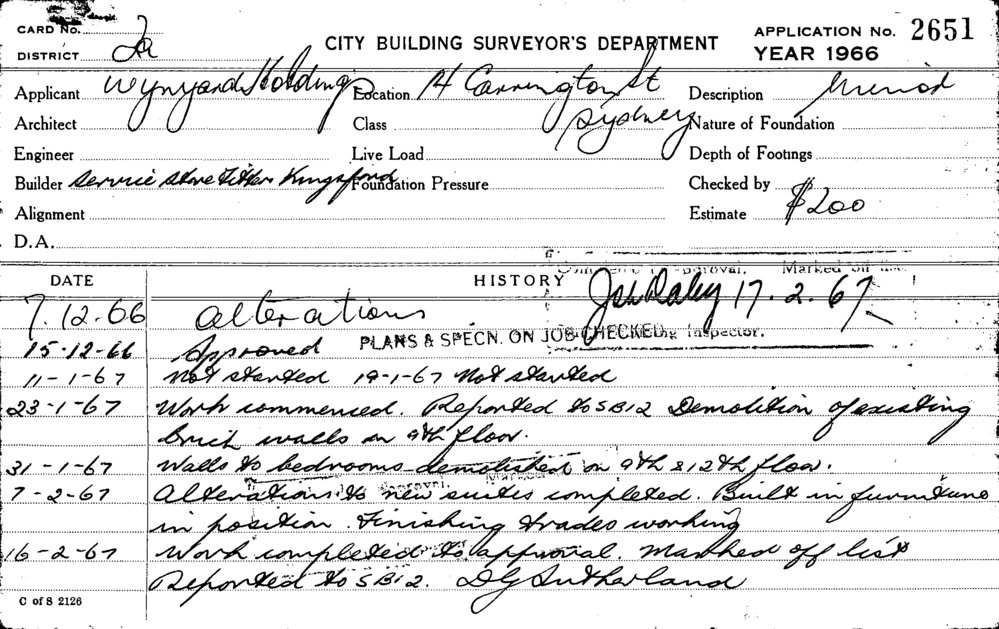 CARD No.
DISTRICT 2a
CITY BUILDING SURVEYOR'S DEPARTMENT
APPLICATION No. 2651
YEAR 1966
Applicant Wynyard Holdings Location 14 Carrington St Description Minor
Architect Class Sydney Nature of Foundation
Engineer Live Load Depth of Footings
Builder Service Store Fitters Kingsford Foundation Pressure Checked by
Alignment Estimate $200
D.A.
DATE HISTORY approval. Marked off
7.12.66 Alterations Daley 17.2.67
15-12-66 Approved PLANS & SPECN. ON JOB CHECKED Inspector.
11-1-67 Not started 19-1-67 Not started
23-1-67 Work commenced. Reported to SB12 Demolition of existing
brick walls on 9th floor.
31-1-67 Walls to bedrooms demolished on 9th & 12th floor.
7-2-67 Alterations to new suites completed. Built in furniture
in position. Finishing trades working
16-2-67 Work completed to approval. Marked off list
Reported to SB12. DG Sutherland
C of S 2126